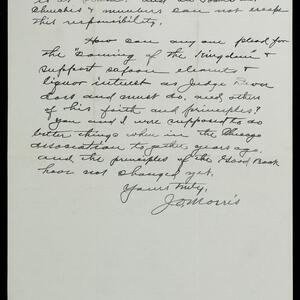 Churches & ministers can not escape
this responsibility.
How can any one plead for
the "Coming of the Kingdom" &
support saloon element &
liquor interest as Judge
does and must do, and others
of his faith and principles?
You and I were supposed to do
better things when in the Chicago
association together years ago
and the principles of the Good Book
have not changed yet.
Yours truly,
J. O. Morris